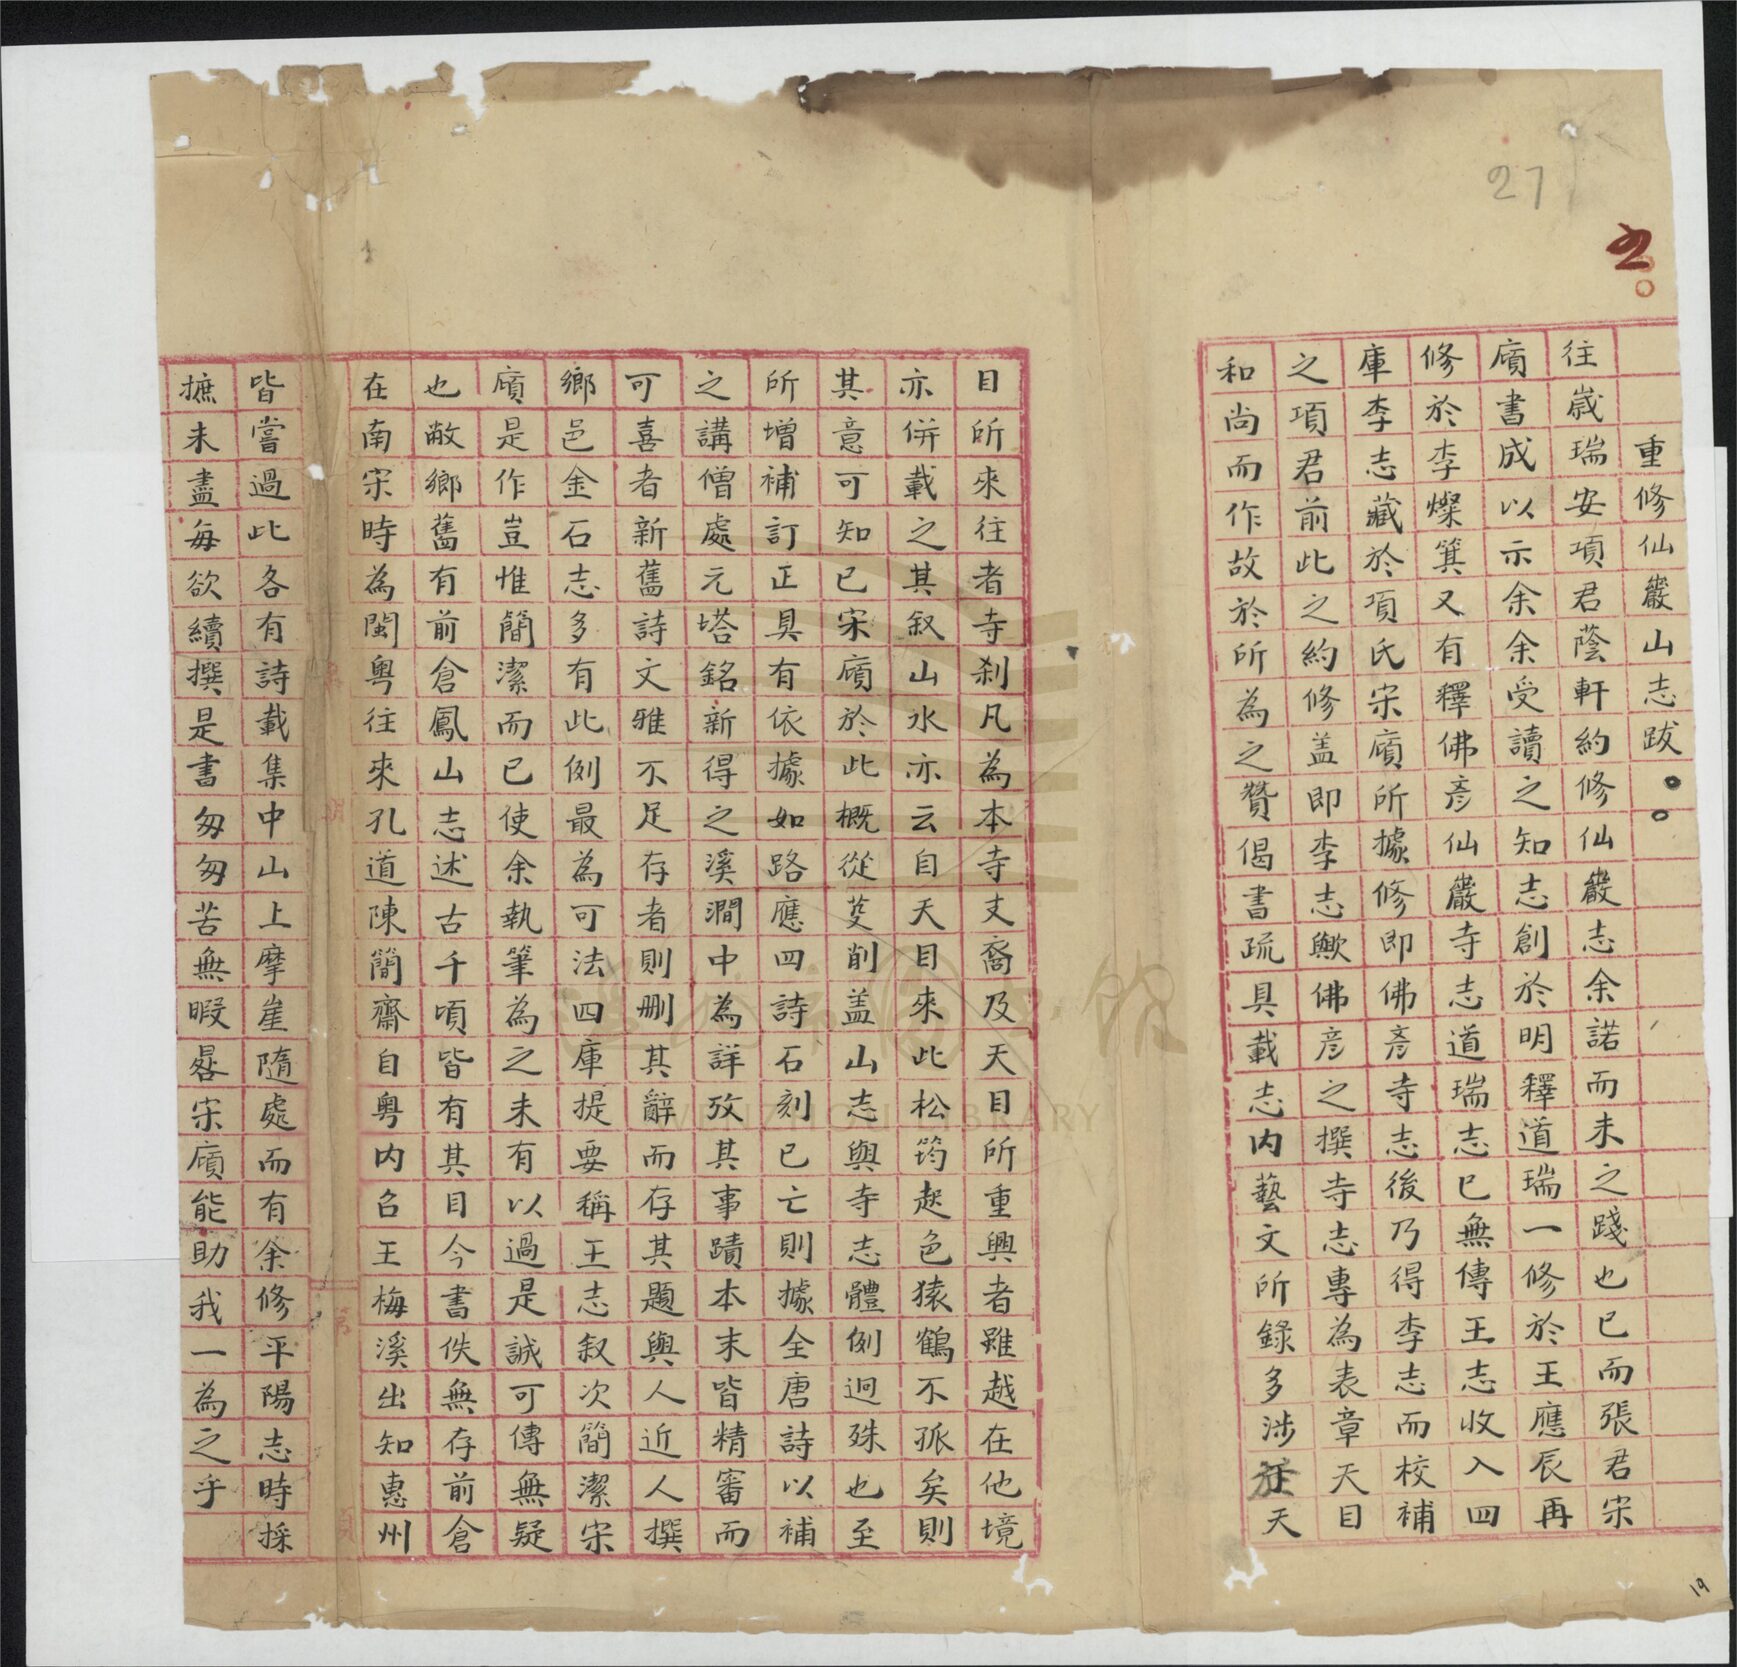 27
重修仙巖山志跋
往歲瑞安項君蔭軒約修仙巖志余諾而未之踐也已而張君宋
廎書成以示余余受讀之知志創於明釋道瑞一修於王應辰再
修於李燦箕又有釋佛彥仙巖寺志道瑞志已無傳王志收入四
庫李志藏於項氏宋廎所據修即佛彥寺志後乃得李志而校補
之項君前此之約修盖即李志歟佛彥之撰寺志專為表章天目
和尚而作故於所為之贊偈書疏具載志内藝文所錄多涉於天
目所來往者寺刹凡為本寺支裔及天目所重興者雖越在他境
亦併載之其叙山水亦云自天目來此松筠起色猿鶴不孤矣則
其意可知已宋廎於此概從芟削盖山志與寺志體例迥殊也至
所增補訂正具有依據如路應四詩石刻已亡則據全唐詩以補
之講僧處元塔銘新得之溪澗中為詳攷其事蹟本末皆精審而
可喜者新舊詩文雅不足存者則删其辭而存其題與人近人撰
鄉邑金石志多有此例最為可法四庫提要稱王志叙次簡潔宋
廎是作豈惟簡潔而已使余執筆為之未有以過是誠可傳無疑
也敝鄉舊有前倉鳳山志述古千頃皆有其目今書佚無存前倉
在南宋時為閩粤往來孔道陳簡齋自粤内召王梅溪出知惠州
皆嘗過此各有詩載集中山上摩崖隨處而有余修平陽志時採
摭未盡每欲續撰是書匆匆苦無暇晷宋廎能助我一為之乎
19
WENZHOU LIBRARY